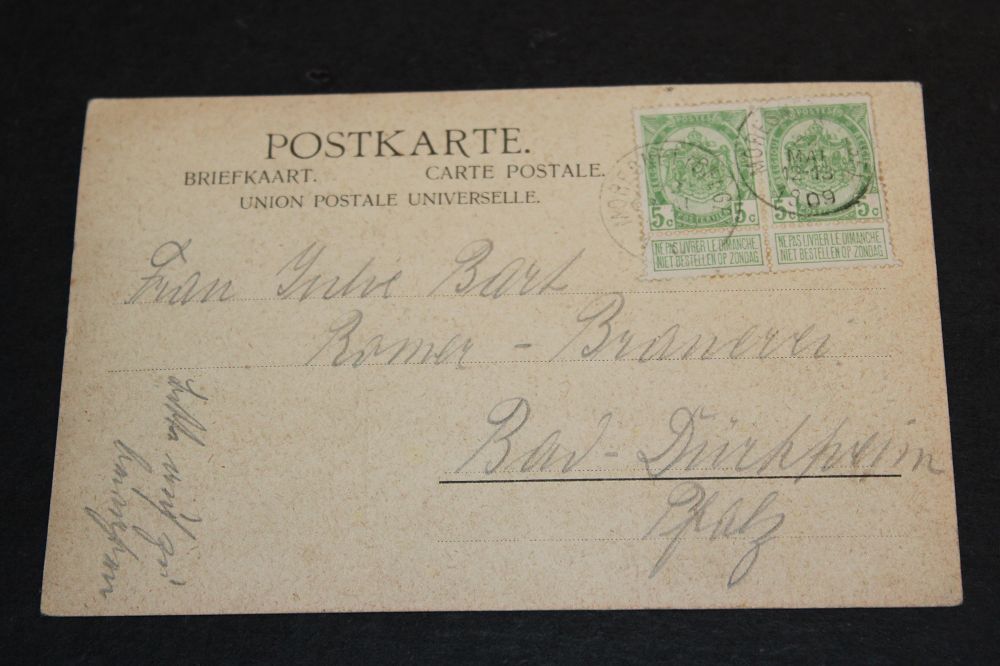 POSTKARTE.
BRIEFKAART. CARTE POSTALE.
UNION POSTALE UNIVERSELLE.
POSTES
5c POSTERIJEN 5c
NE PAS LIVRER LE DIMANCHE
NIET BESTELLEN OP ZONDAG
POSTES
5c 5c
NE PAS LIVRER LE DIMANCHE
NIET BESTELLEN OP ZONDAG
MORE
MAI
09
Frau Julie Bart
Römer - Brauerei
Bad-Dürkheim
Pfalz
Bitte